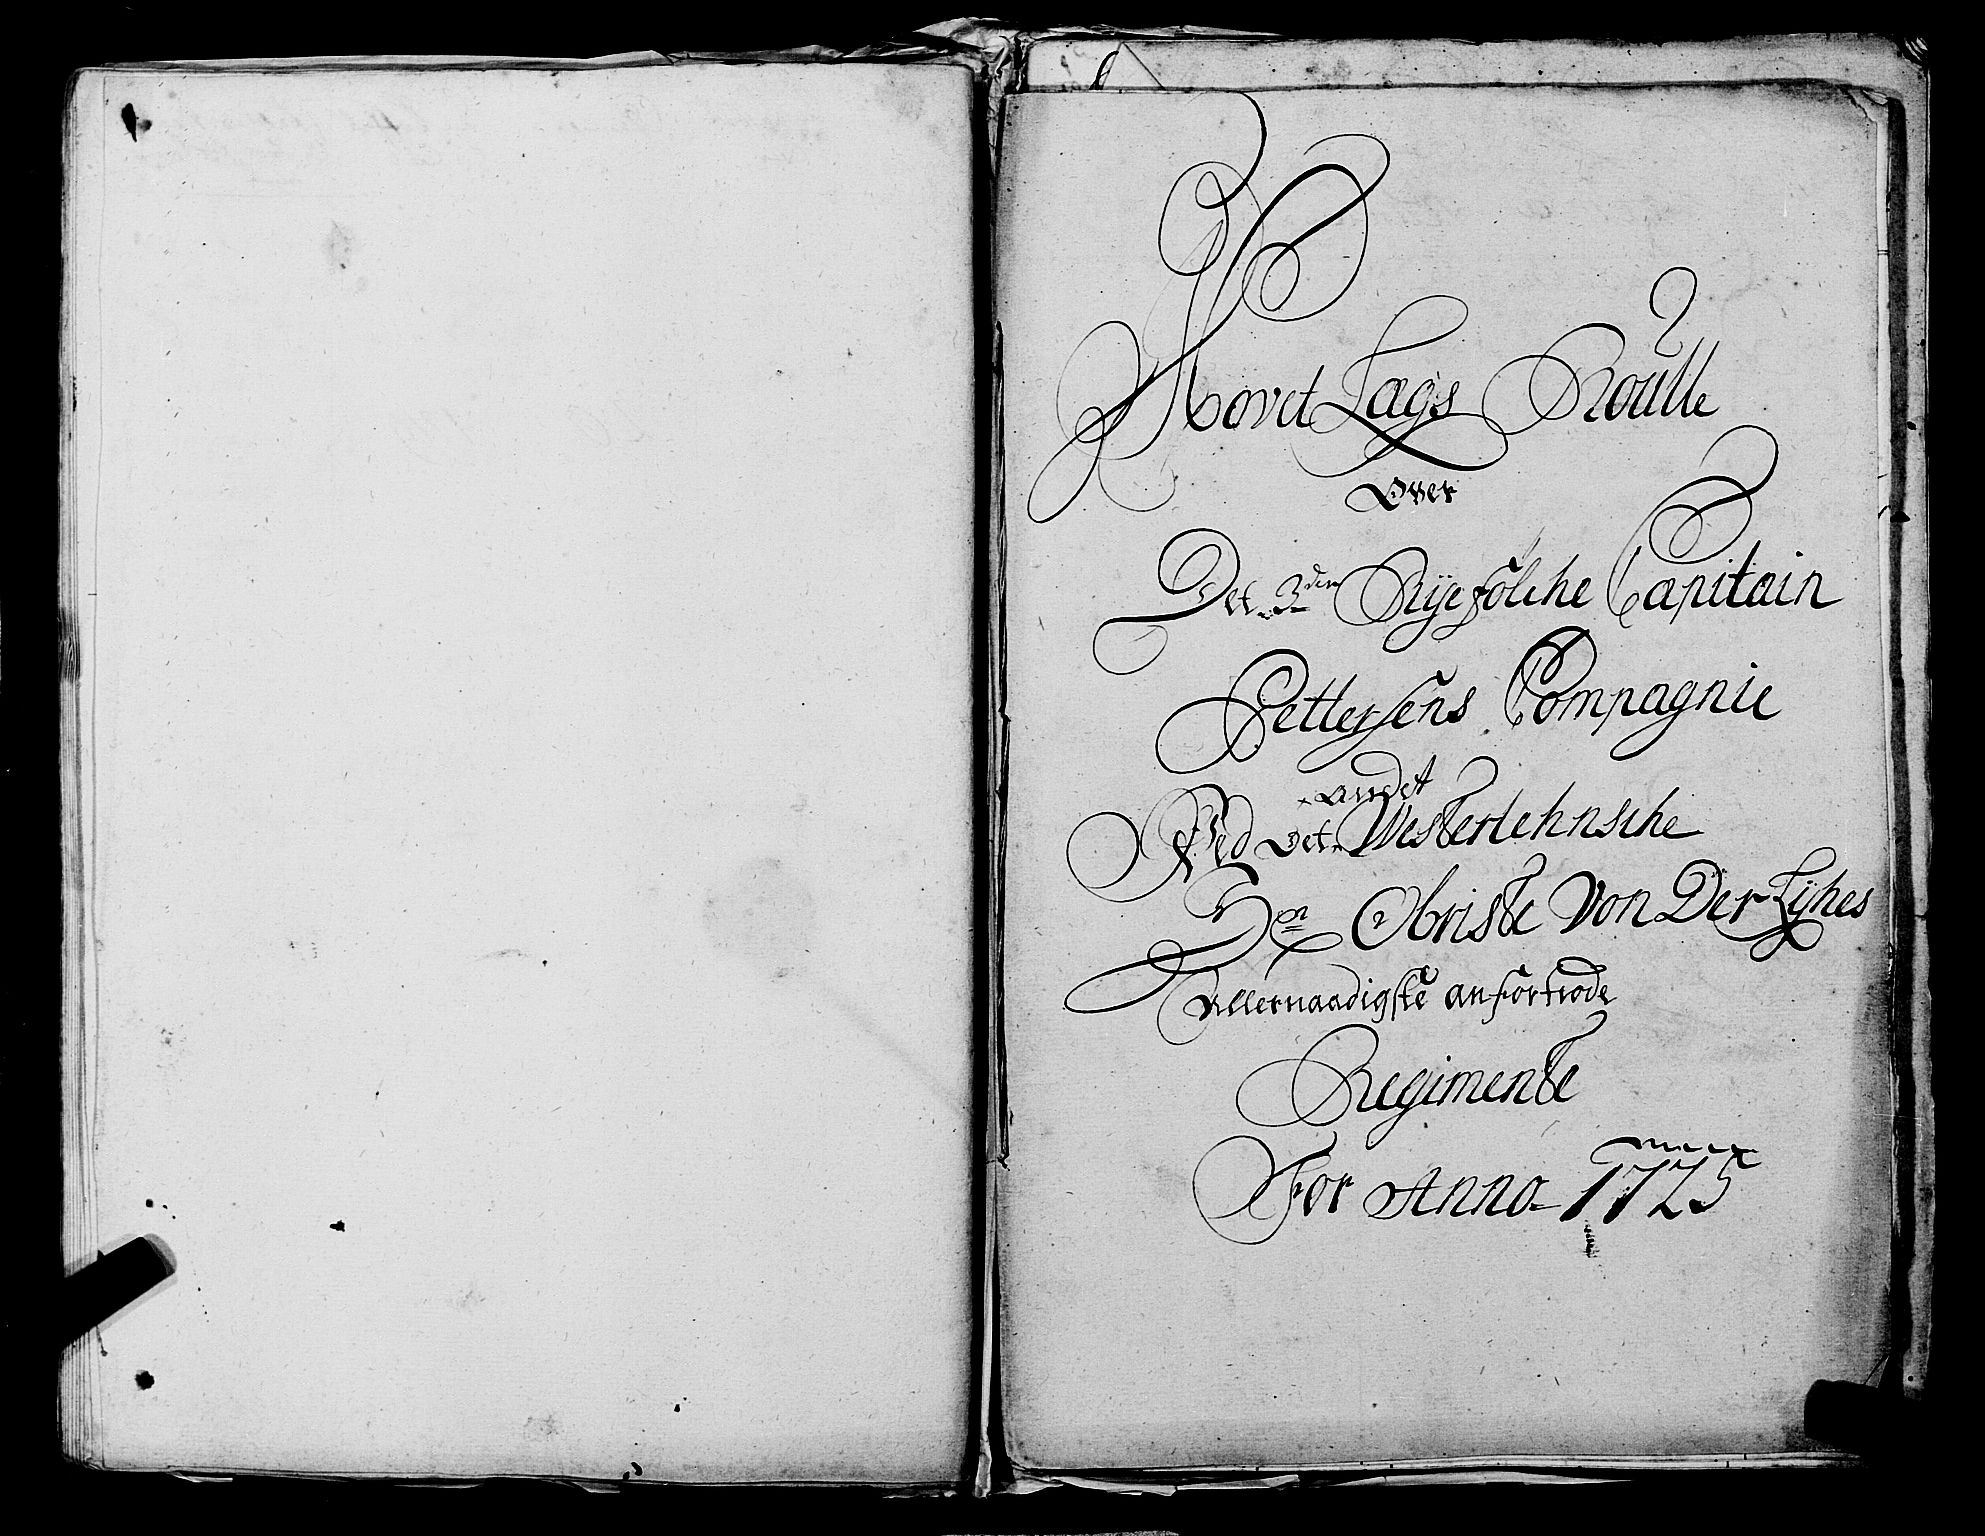 Hovet Lags Roulle
Over
Det 3den Ryefölche Capitain
Pettersens Compagnie
andet
Ved Det Westerlehnsche
Hr Obriste Von Der Lyhes
Allernaadigste anfortrode
Regimente
For Anno 1725